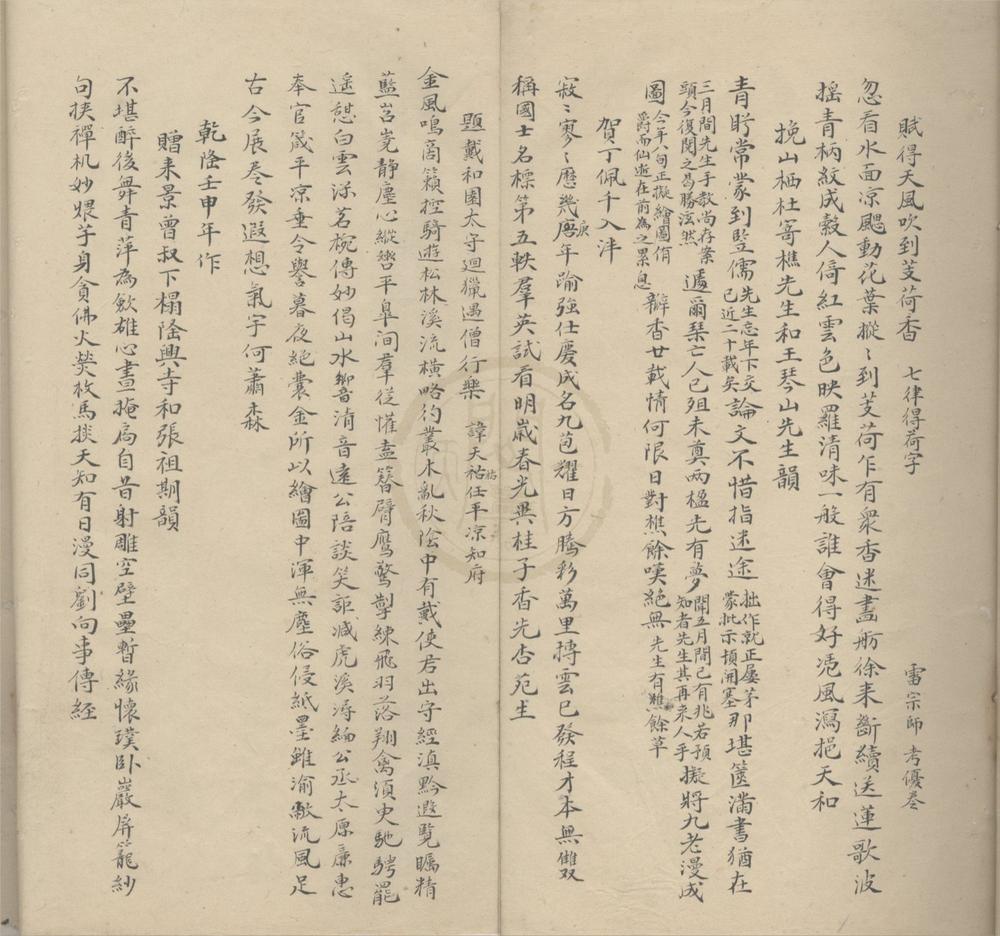 賦得天風吹到芰荷香 七律得荷字 雷宗師考優卷
忽看水面凉颸動花葉搖〻到芰荷乍有衆香迷畵舫徐来斷續送蓮歌波
摇青柄紋成縠人倚紅雲色映羅清味一般誰會得好凴風瀉挹天和
挽山栖杜寄樵先生和王琴山先生韻
青盻常蒙到竪儒先生忘年下交已近二十載矣論文不惜指迷途拙作就正屢蒙批示頓開茅塞那堪篋滿書猶在
三月間先生手教尚存案頭今復閱之曷勝泫然遽爾琴亡人已殂未奠兩楹先有夢聞五月間已有兆若預知者先生其再来人乎擬將九老漫成
圖今年八旬正擬繪圖侑爵而仙逝在前為之累息瓣香廿載情何限日對樵餘嘆絕無先生有樵餘草
賀丁佩千入泮
寂〻寥〻歷幾庚年踰強仕慶成名九苞耀日方騰彩萬里摶雲已發程才本無雙
稱國士名標第五軼羣英試看明歲春光異桂子香先杏苑生
題戴和園太守迴獵遇僧行樂 諱天祐任平凉知府
金風鳴商籟控騎遊松林溪流橫略彴叢木亂秋陰中有戴使君出守經滇黔遐覽矚精
藍岧嶤静塵心縱轡平臯間羣從懽盍簪臂鷹驚掣練飛羽落翔禽須臾馳騁罷
遥憩白雲深茗椀傳妙偈山水響清音遠公陪談笑詎減虎溪潯緬公丞太原廉恵
奉官箴平凉垂令譽暮夜絕囊金所以繪圖中渾無塵俗侵紙墨雖渝敝流風足
古今展卷發遐想氣宇何蕭森
乾隆壬申年作
贈来景曽叔下榻隆興寺和張祖期韻
不堪醉後舞青萍為歛雄心晝掩扃自昔射雕空壁壘暫緣懷璞卧巖屏籠紗
句挟禪机妙煨芋身貪佛火熒枚馬掞天知有日漫同劉向事傳経